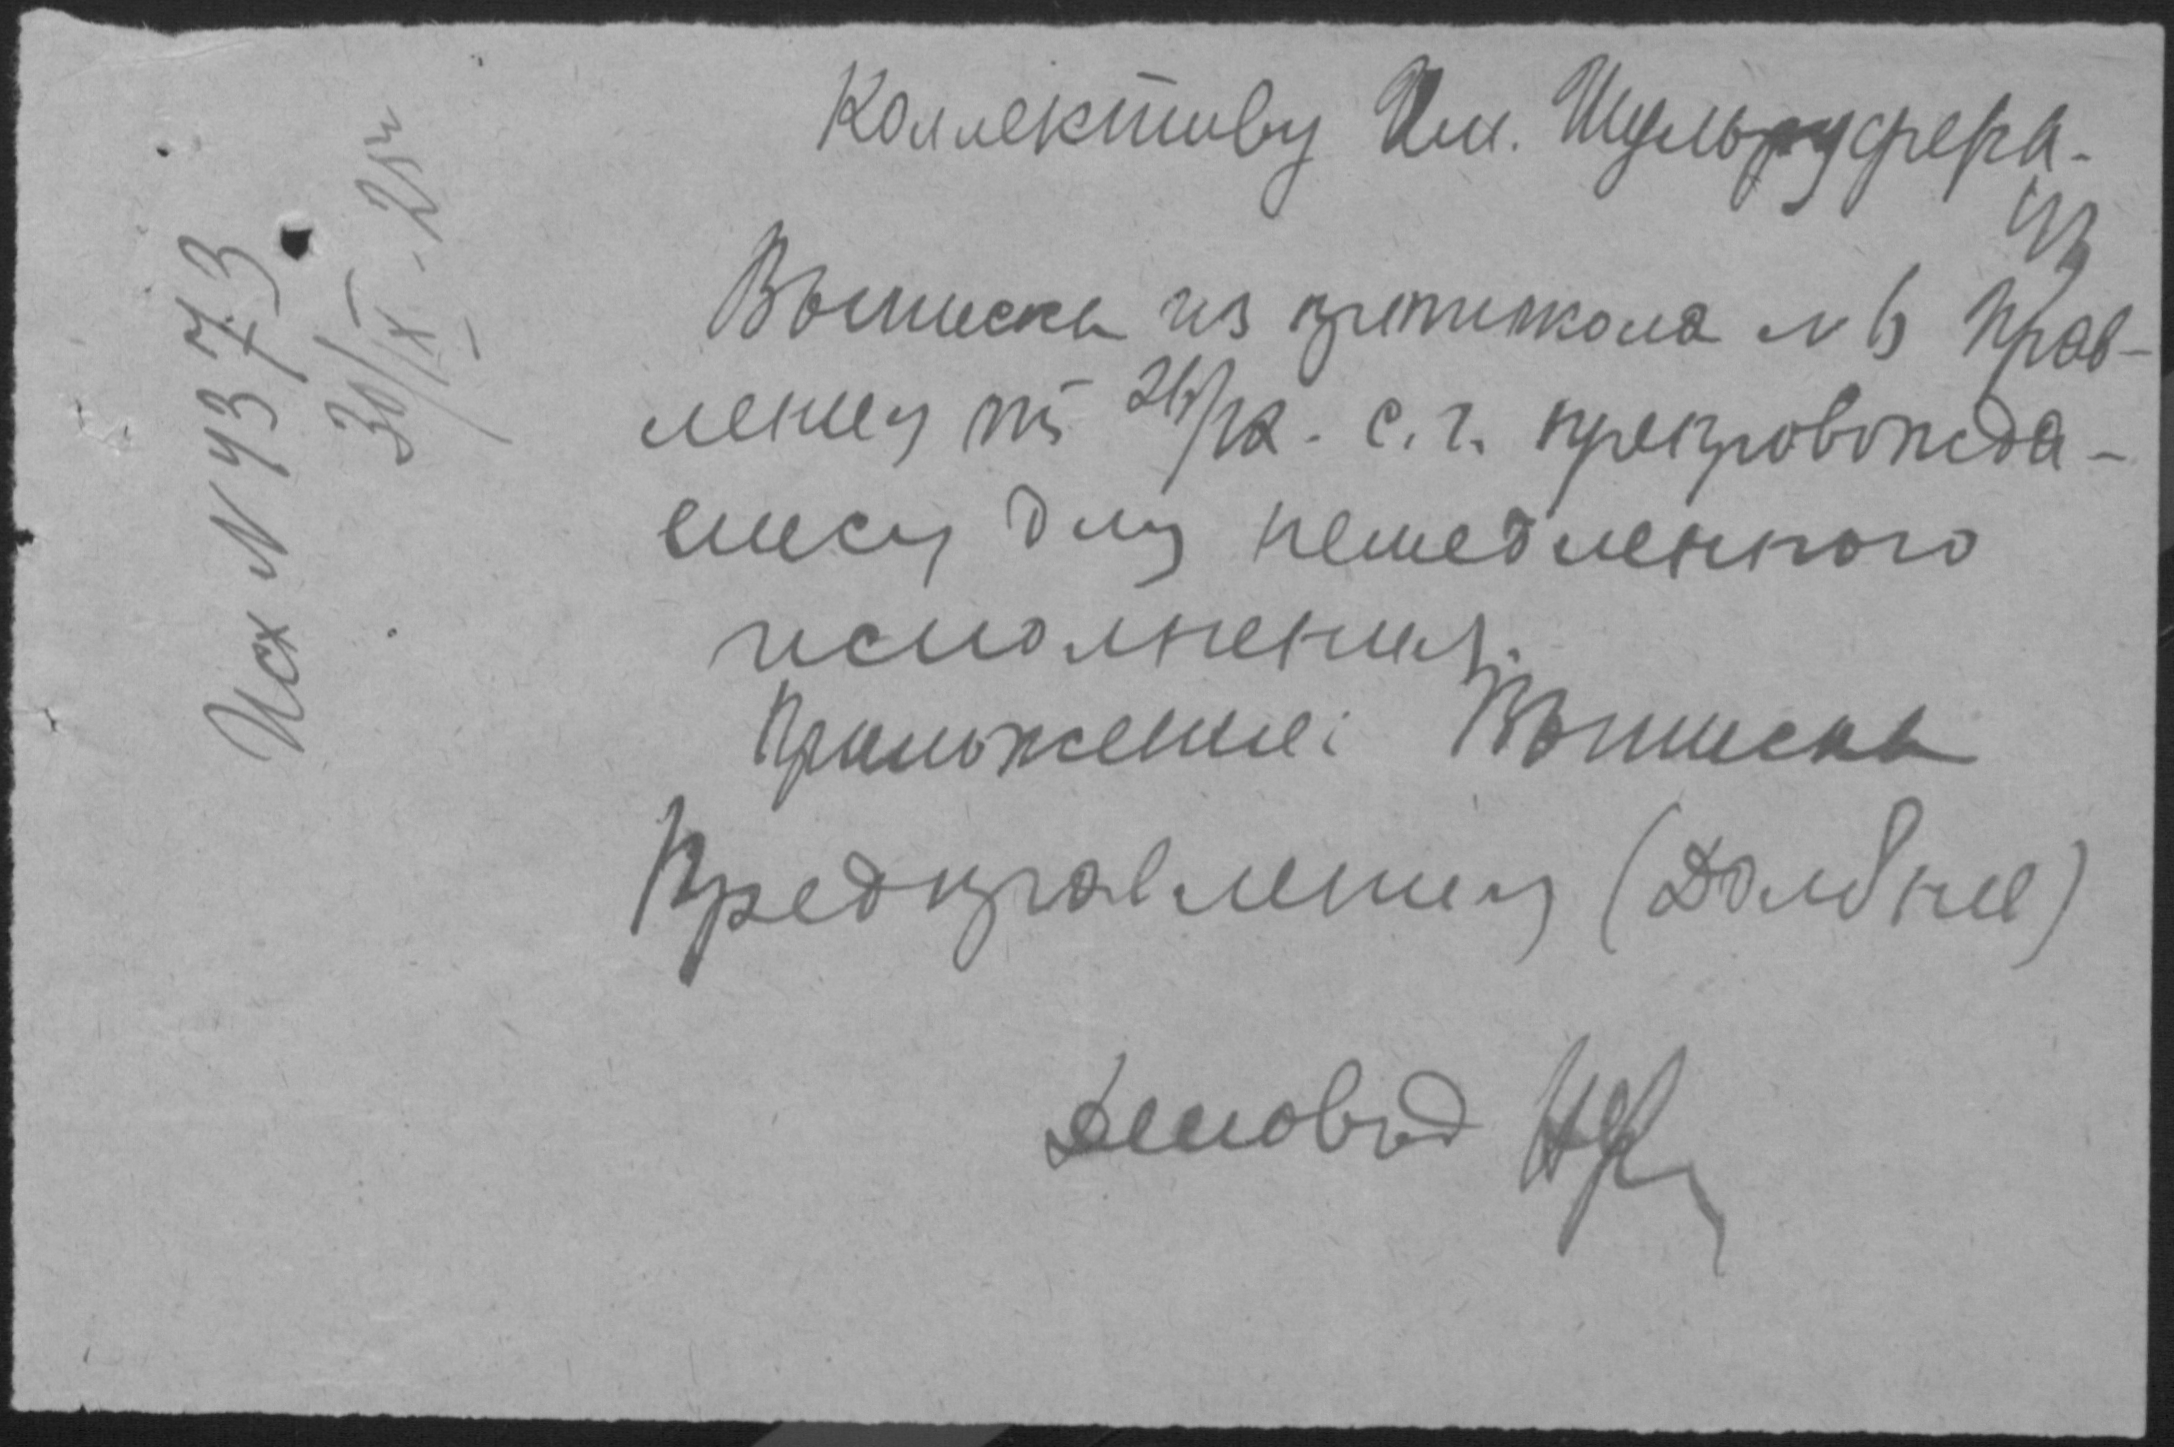 Исх N 4373
30/IX - 25 г
Коллективу Им. Шульгуфера.
Выписка из протокола N 6 Прав-
ления от 26/IX. с. г. препровожда-
ется для немедленного
исполнения.
Приложение: Выписка
Предправления (Долбня)
Деловод